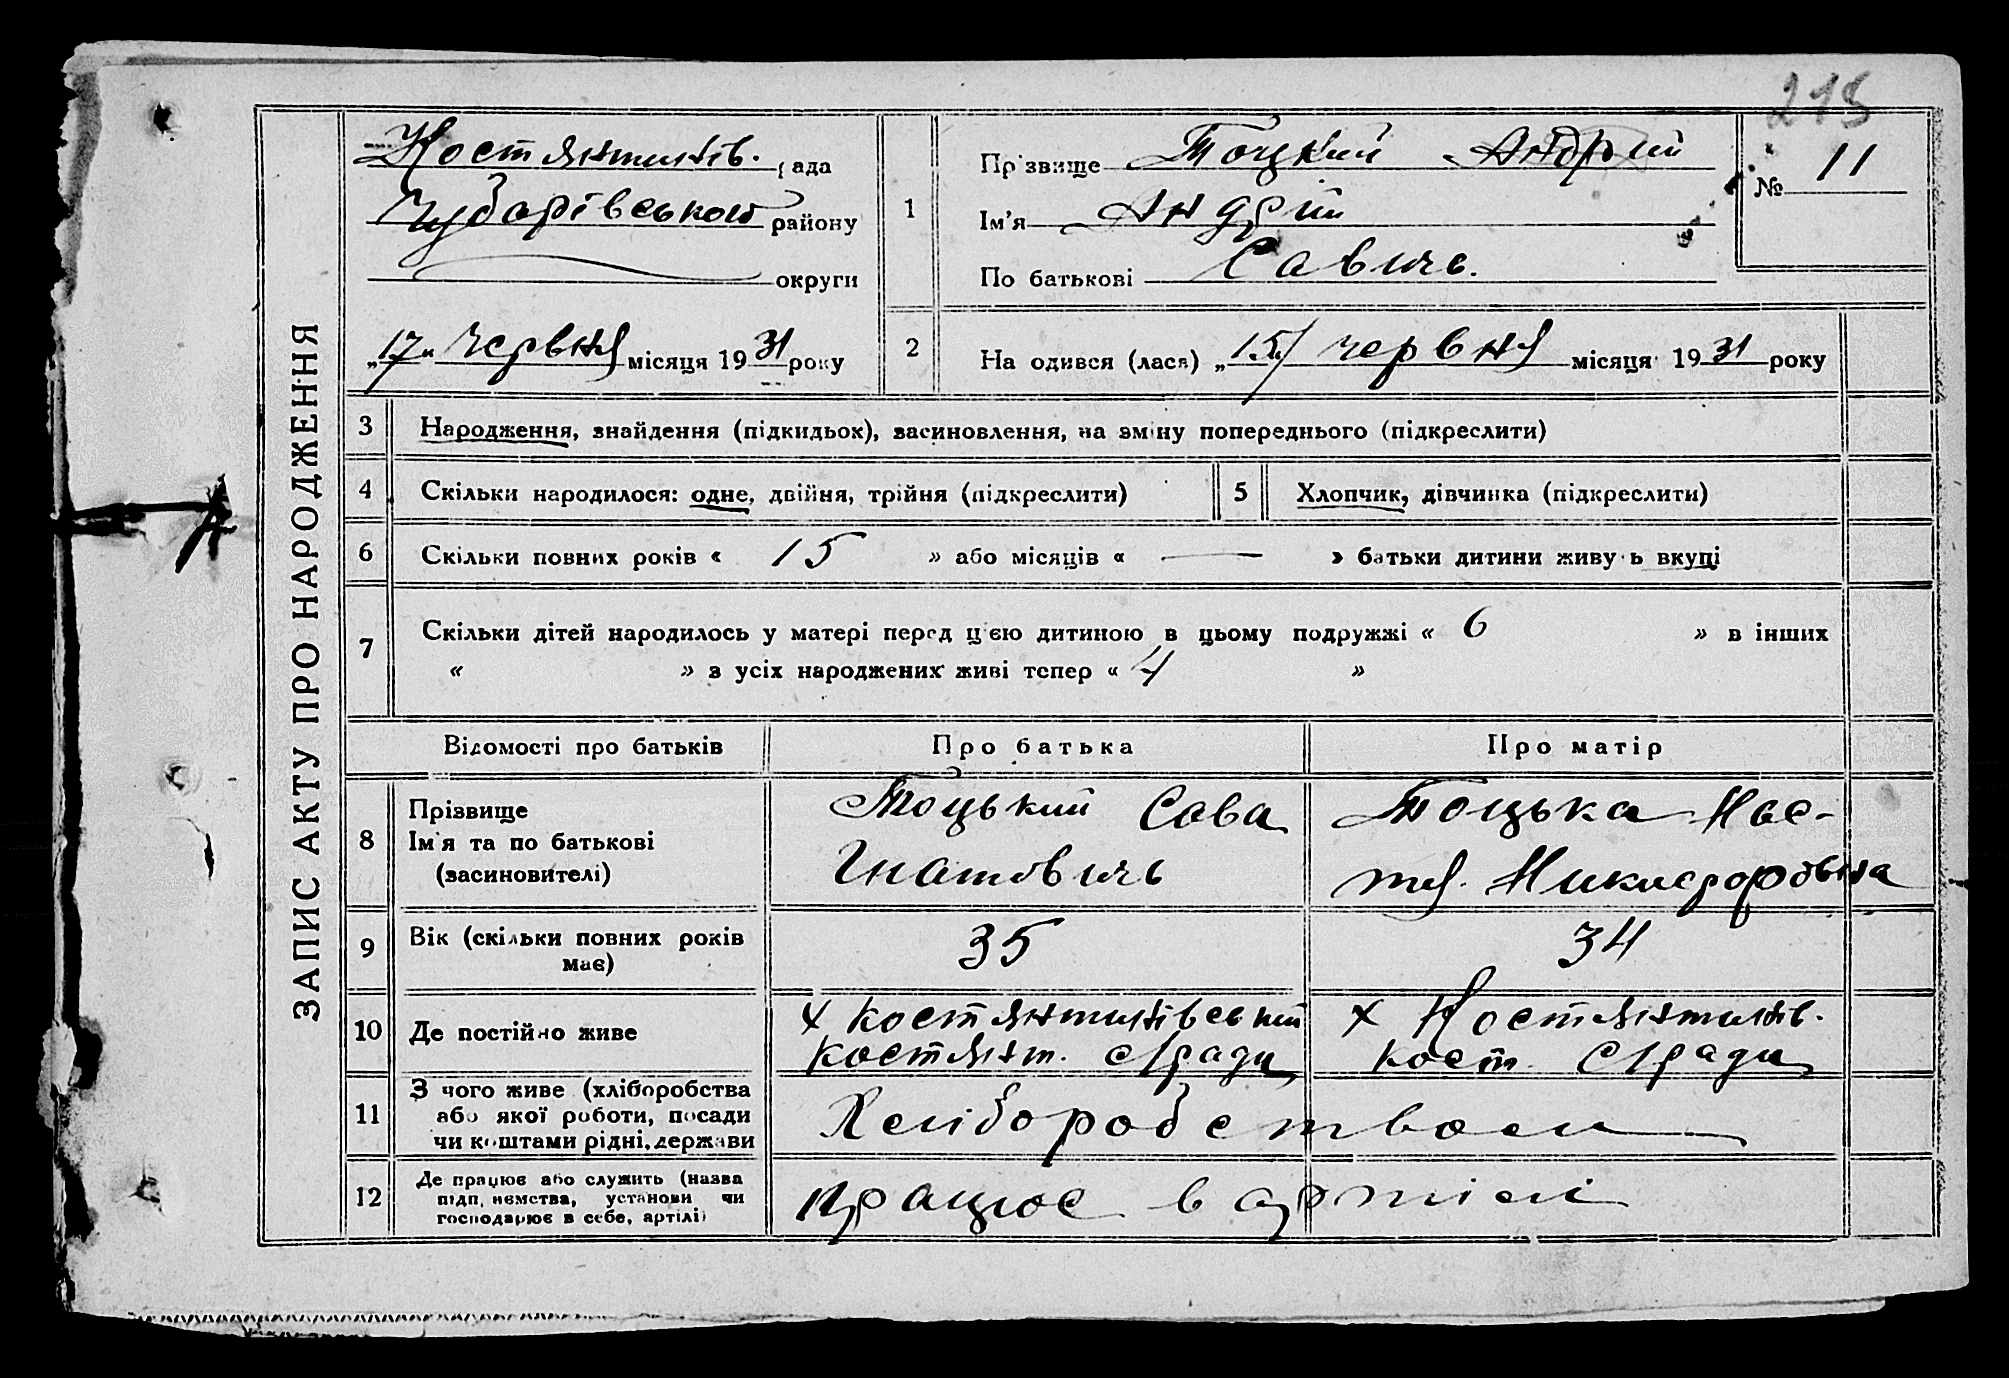 215
ЗАПИС АКТУ ПРО НАРОДЖЕННЯ
Костянтинів. рада
Чубарівського району
округи
„17" червня місяця 1931 року
1
Прізвище Тоцкий Андрий
Ім'я Андрий
По батькові Савичь.
№ 11
2
На одився (лася) „15" червня місяця 1931 року
3 Народження, знайдення (підкидьок), засиновлення, на зміну попереднього (підкреслити)
4 Скільки народилося: одне, двійня, трійня (підкреслити) 5 Хлопчик, дівчинка (підкреслити)
6 Скільки повних років « 15 » або місяців « — » батьки дитини живуть вкупі
7 Скільки дітей народилось у матері перед цією дитиною в цьому подружжі « 6 » в інших
« » з усіх народжених живі тепер « 4 »
Відомості про батьків Про батька Про матір
8 Прізвище
Ім'я та по батькові
(засиновителі)
Тоцький Сава
Гнатовичь
Тоцька Нас-
тя. Никифоровна
9 Вік (скільки повних років
має)
35
34
10 Де постійно живе
х Костянтинівський
Костянт. с/ради
х Костянтинів.
Кост. с/ради
11 З чого живе (хліборобства
або якої роботи, посади
чи коштами рідні, держави
Хліборобством
12 Де працює або служить (назва
підп, иємства, установи чи
господарює в себе, артілі)
працює в артілі